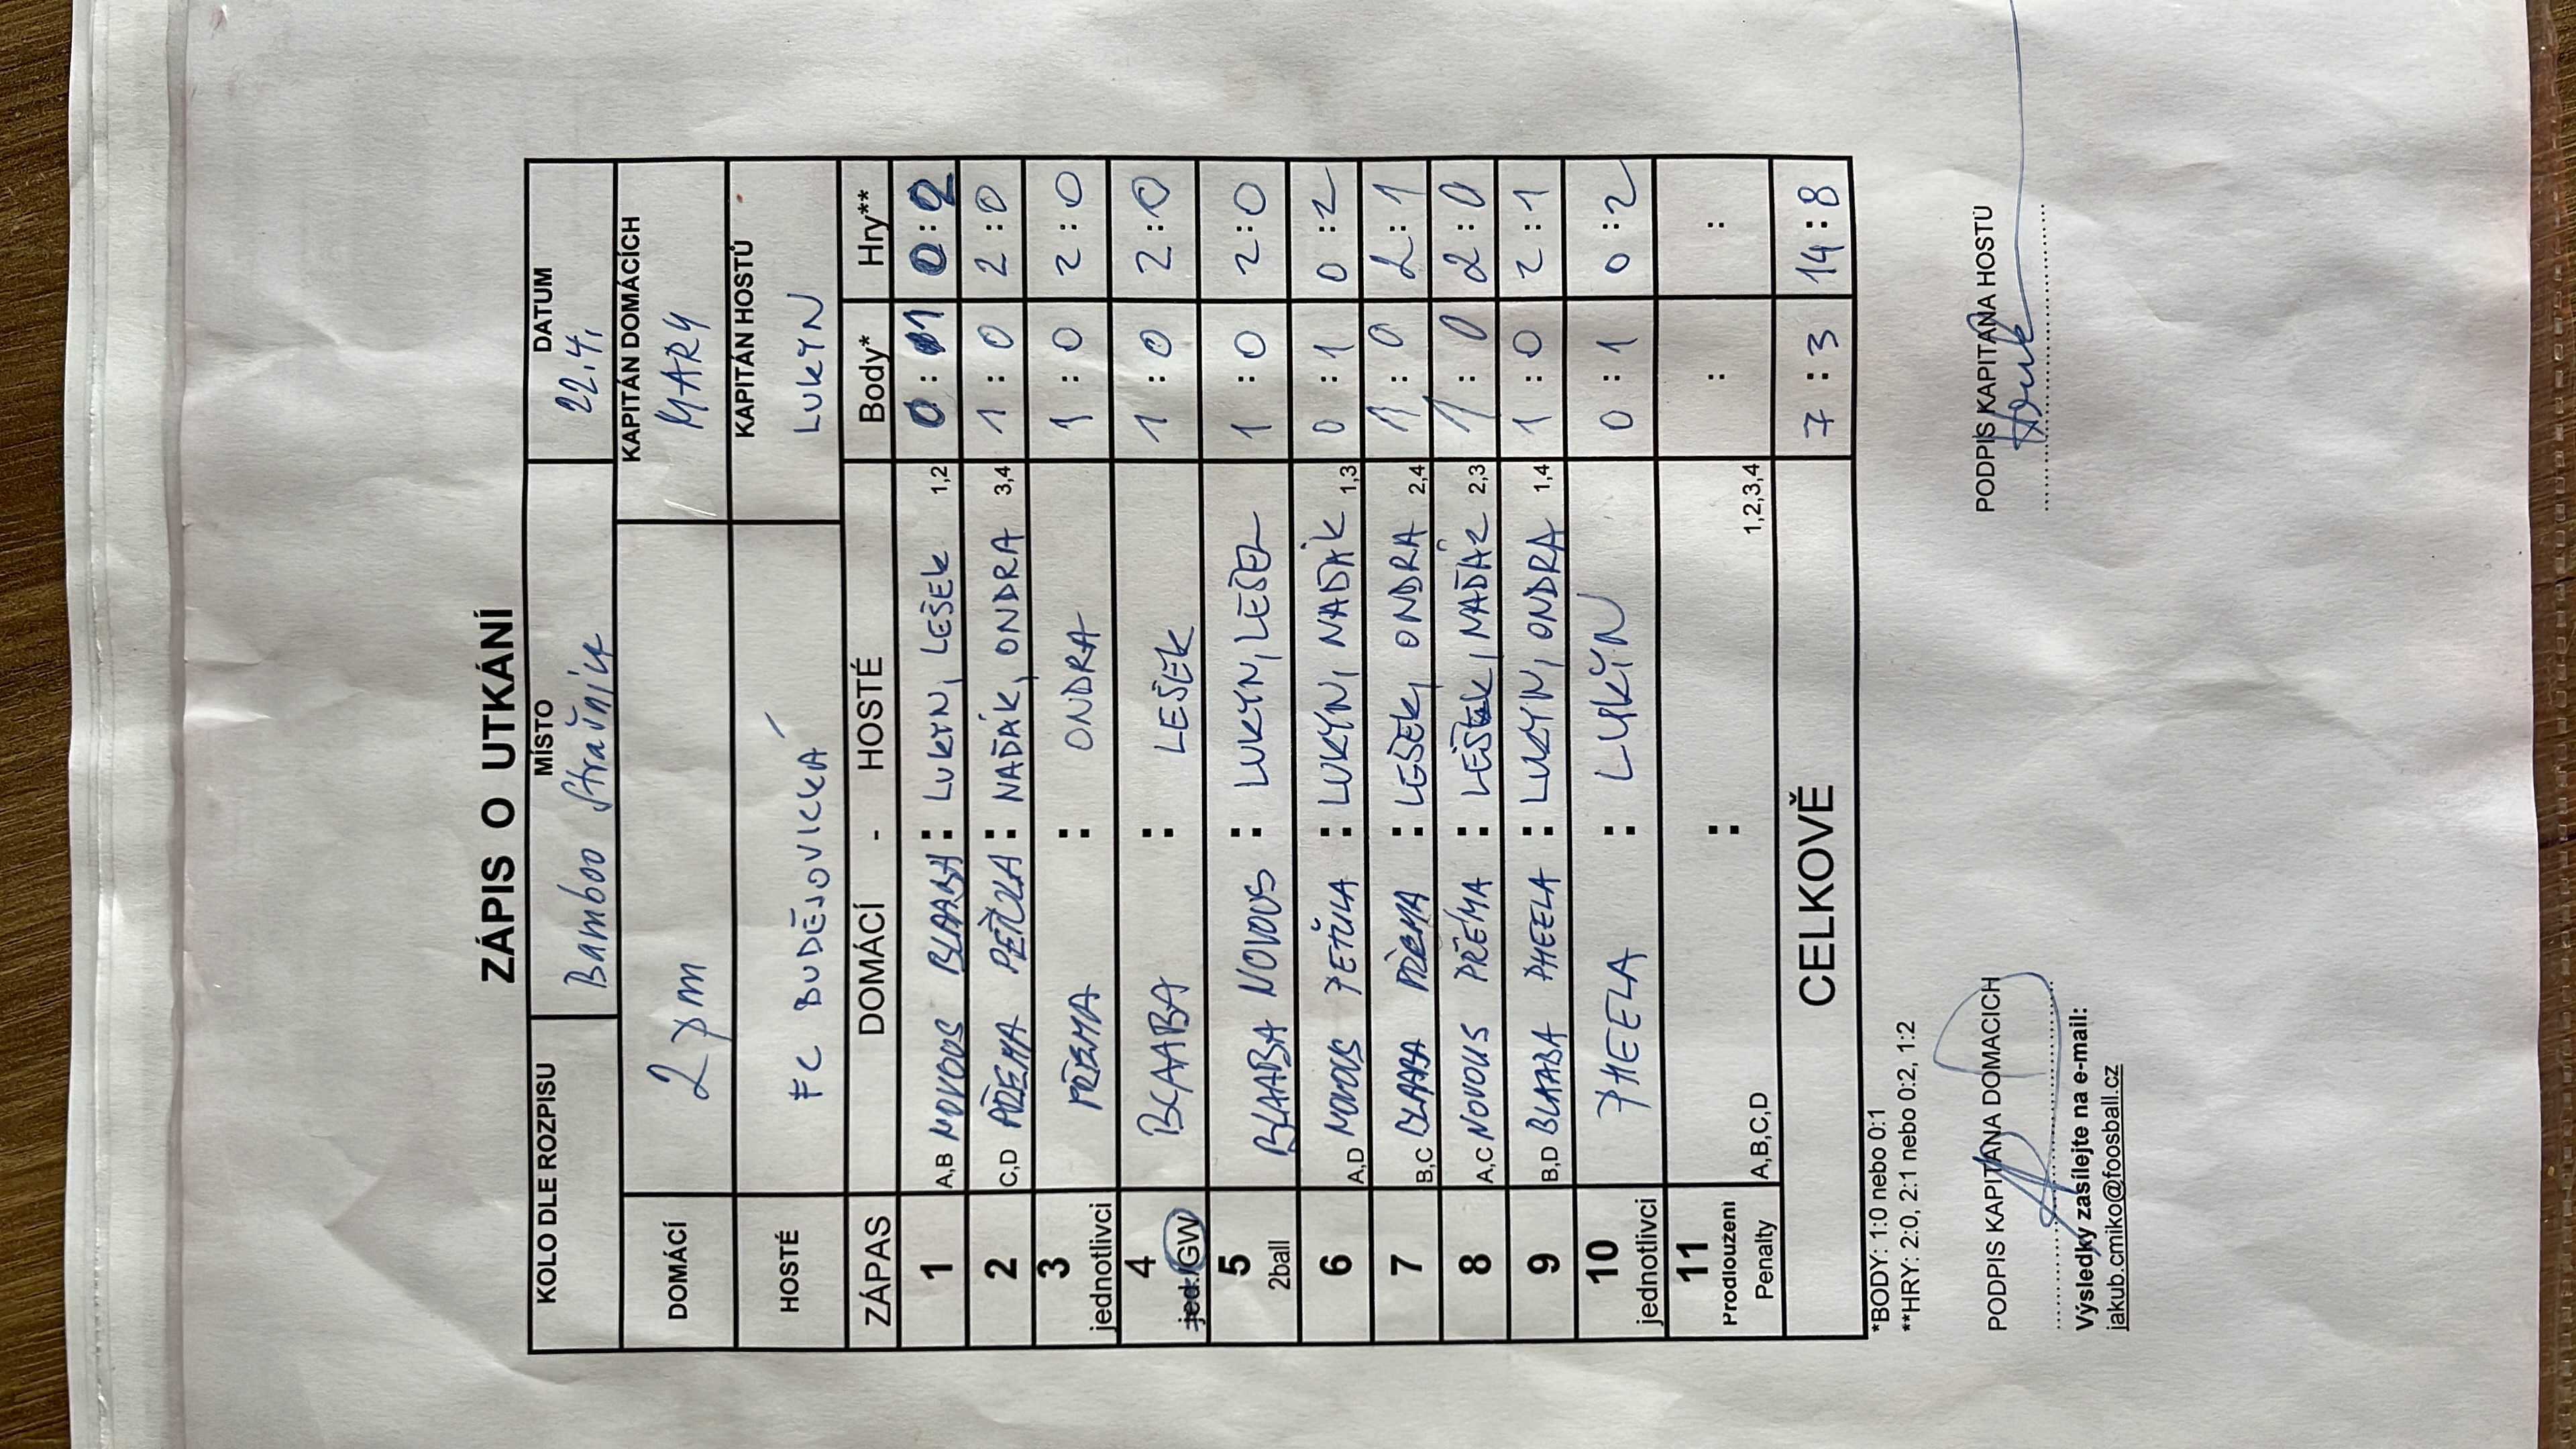 ZÁPIS O UTKÁNÍ
KOLO DLE ROZPISU MÍSTO DATUM
Bamboo Strašnice 22.4.
DOMÁCÍ 2pm KAPITÁN DOMÁCÍCH MARY
HOSTÉ FC BUDĚJOVICKÁ KAPITÁN HOSTŮ LUKYN
ZÁPAS DOMÁCÍ - HOSTÉ Body* Hry**
1 A,B NOVOUS BLAABA : LUKYN, LEŠEK 1,2 0 : 1 0 : 2
2 C,D PŘEMA PEŤULA : NAĎÁK, ONDRA 3,4 1 : 0 2 : 0
3 jednotlivci PŘEMA : ONDRA 1 : 0 2 : 0
4 jed./GW BLAABA : LEŠEK 1 : 0 2 : 0
5 2ball BLAABA NOVOUS : LUKYN, LEŠEK 1 : 0 2 : 0
6 A,D NOVOUS PEŤULA : LUKYN, NAĎÁK 1,3 0 : 1 0 : 2
7 B,C BLAABA PŘEMA : LEŠEK, ONDRA 2,4 1 : 0 2 : 1
8 A,C NOVOUS PŘEMA : LEŠEK, NAĎÁK 2,3 1 : 0 2 : 0
9 B,D BLAABA PHEELA : LUKYN, ONDRA 1,4 1 : 0 2 : 1
10 jednotlivci PHEELA : LUKYN 0 : 1 0 : 2
11 Prodloužení Penalty A,B,C,D : 1,2,3,4 : :
CELKOVĚ 7 : 3 14 : 8
*BODY: 1:0 nebo 0:1
**HRY: 2:0, 2:1 nebo 0:2, 1:2
PODPIS KAPITÁNA DOMÁCÍCH PODPIS KAPITÁNA HOSTŮ
Výsledky zasílejte na e-mail:
jakub.cmiko@foosball.cz